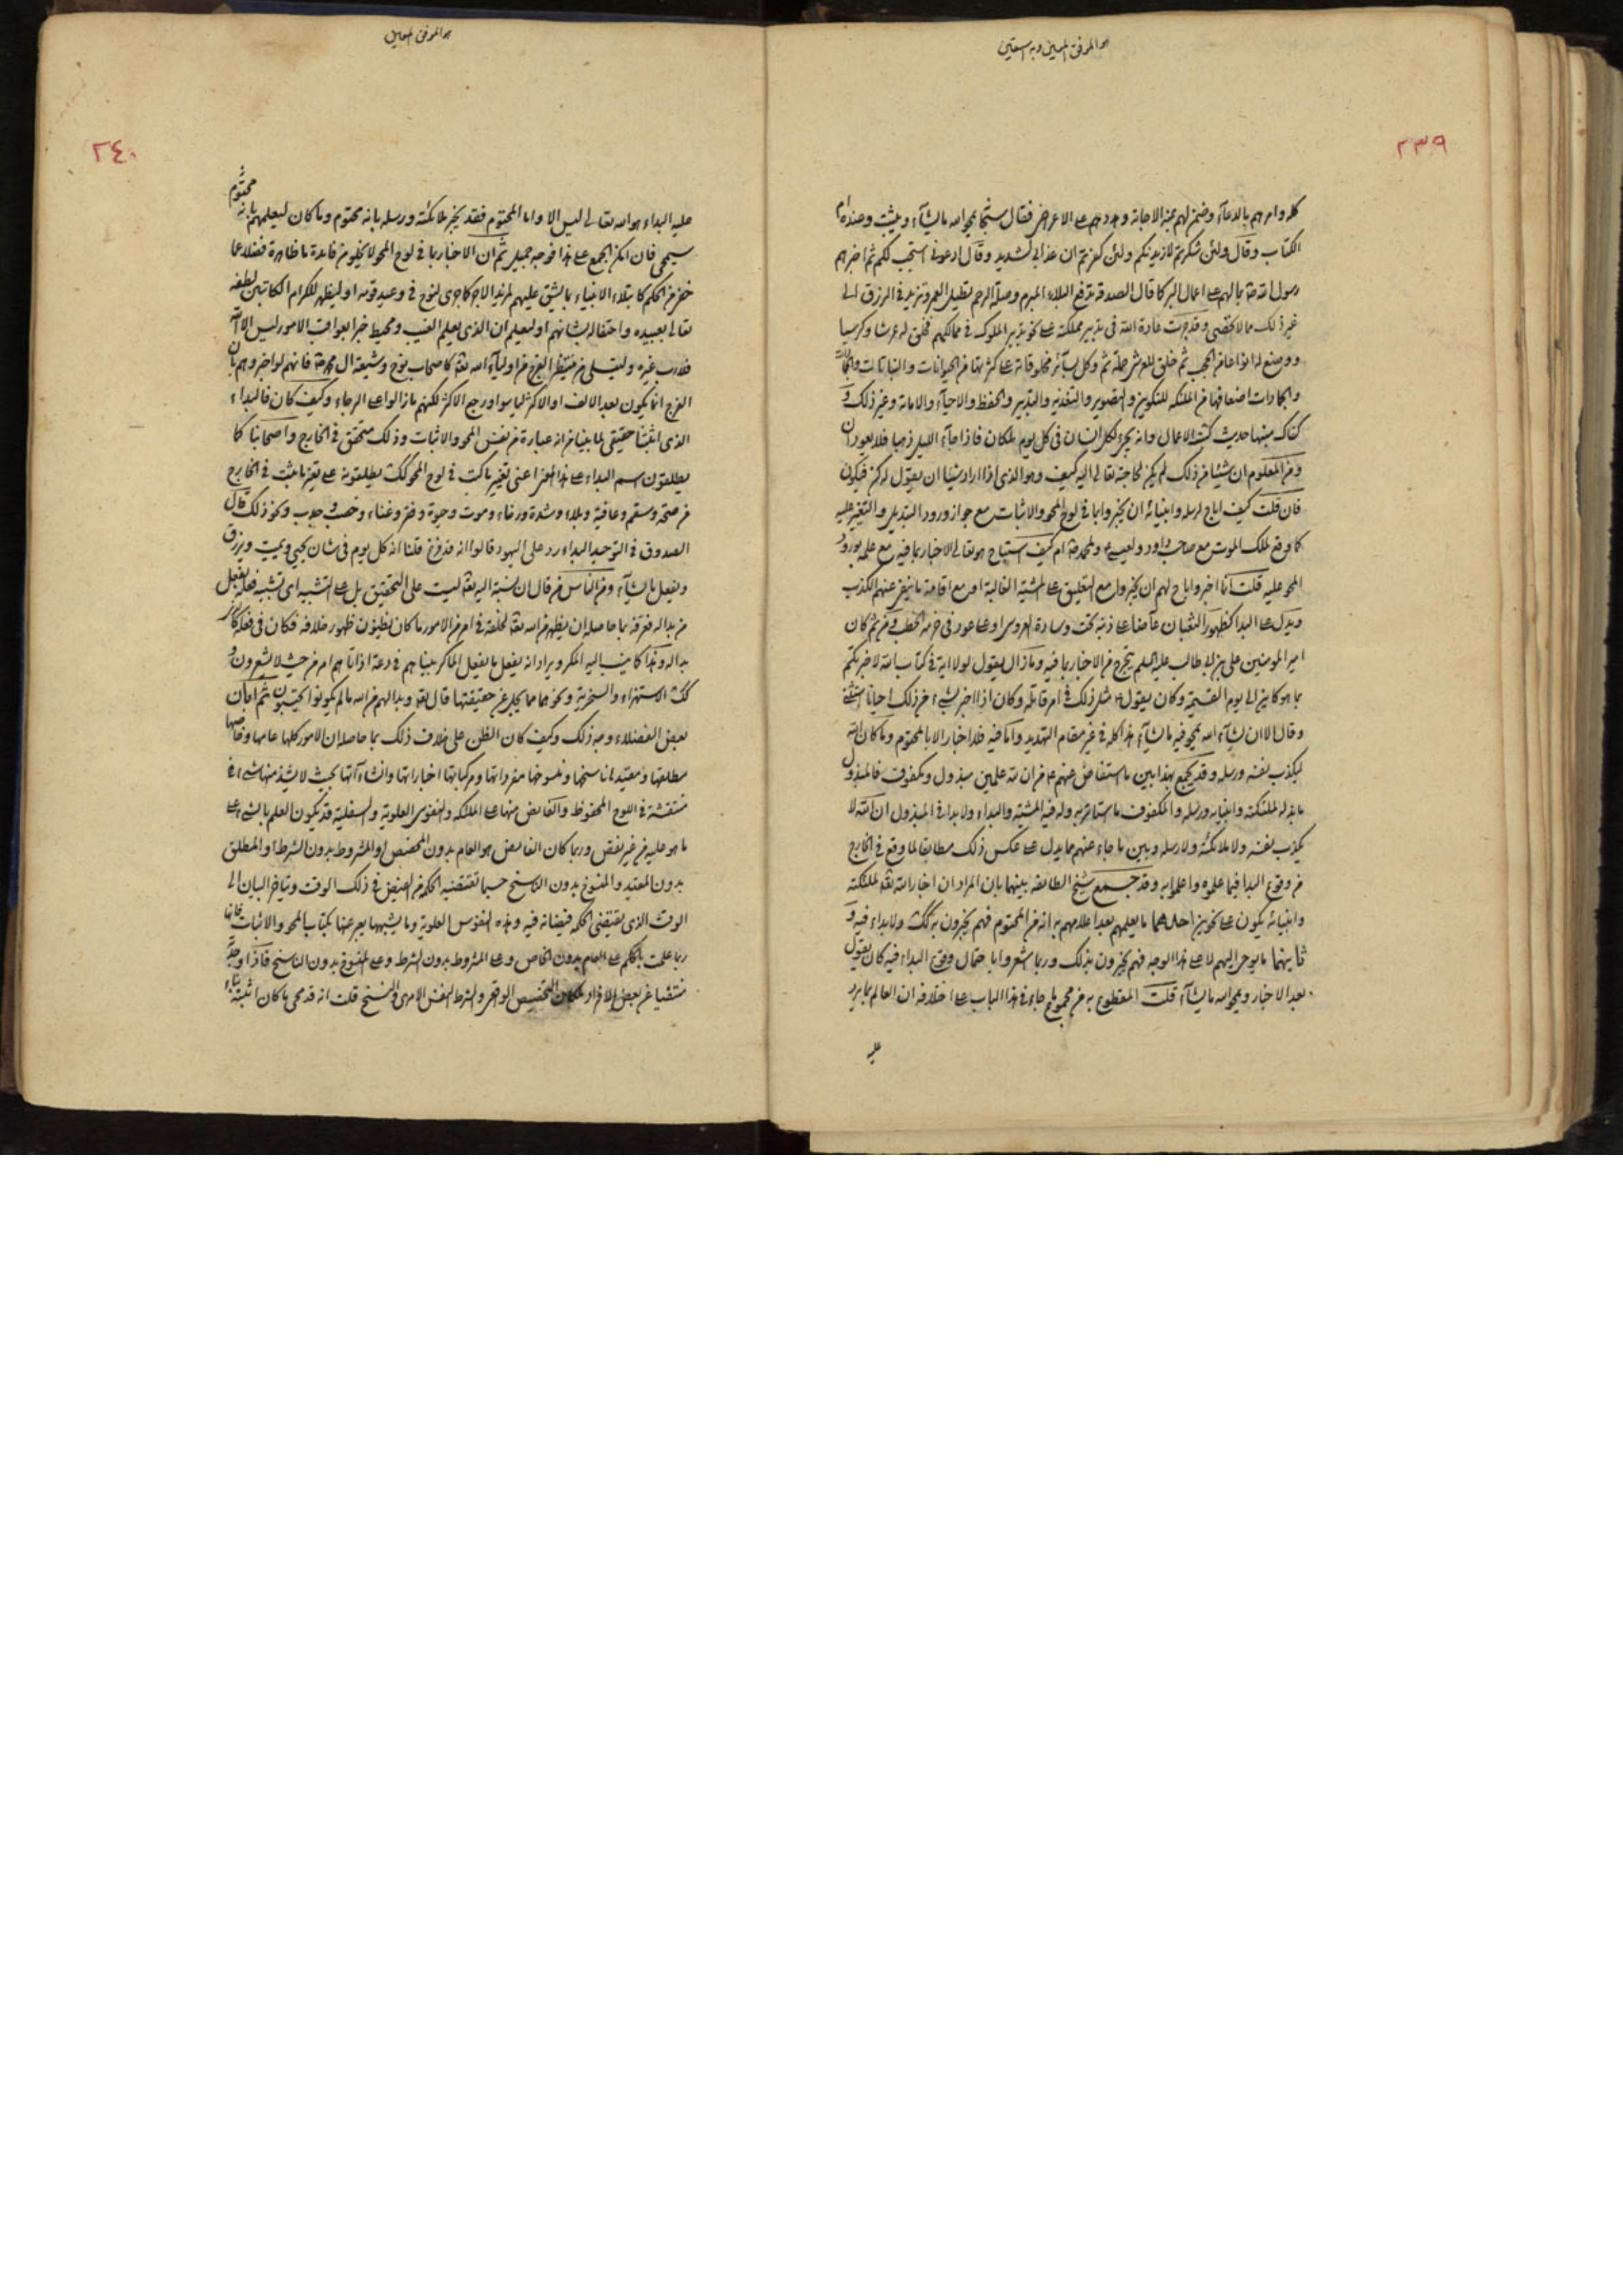 هو الموفق المعين وبه نستعين
٢٣٩
كله وامرهم بالدعاء وضمن لهم عنه الاجابة وهددهم على الاعراض فقال سبحانه يمحوا الله ما يشاء ويثبت وعنده ام
الكتاب وقال ولئن شكرتم لازيدنكم ولئن كفرتم ان عذابي لشديد وقال ادعوني استجب لكم ثم اخبرهم
رسول الله بمالهم على اعمال البر كما قال الصدقة تدفع البلاء المبرم وصلة الرحم تطيل العمر وتزيد في الرزق الى
غير ذلك مما لا يحصى وقد جرت عادة الله في تدبير مملكته على نحو تدبير الملوك في ممالكهم فخلق له عرشا وكرسيا
ووضع له انواعا من الحجب ثم خلق للعرش حملة ثم وكل بسائر مخلوقاته على كثرتها من الحيوانات والنباتات
والجمادات اضعافها من الملئكة للتكوين والتصوير والتغذيه والتدبير والحفظ والاحياء والاماتة وغير ذلك و
هناك منها حديث كتبة الاعمال وانه يجيء لكل انسان في كل يوم ملكان فاذا جاء الليل ذهبا فلا يعودان
ومن المعلوم ان شيئا من ذلك لم يكن لحاجته تعالى اليه كيف وهو الذي اذا اراد شيئا ان يقول له كن فيكون
فان قلت كيف اباح لرسله وانبيائه ان يخبروا بما في لوح المحو والاثبات مع جواز ورود التبديل والتغير عليه
كما وقع لملك الموت مع صاحب داود ولعيسى ولمحمد ام كيف استباح هو تعالى الاخبار بما فيه مع علمه بورود
المحو عليه قلت انما اخبروا باح لهم ان يخبروا مع التعليق على المشية الغالبة او مع اقامة ما ينفي عنهم الكذب
ويدل على البدا كظهور الثعبان عاضا على ذنبه تحت وسادة العروس او على عود في حزمة الحطب ومن ثم كان
امير المومنين علي بن ابي طالب عليه السلم يتحرج من الاخبار بما فيه وما زال يقول لولا اية في كتاب الله لاخبرتكم
بما هو كاين الى يوم القيمة وكان يقول مثل ذلك في امر قاتله وكان اذا اخبر بشيء من ذلك احيانا استثنى
وقال الا ان يشاء الله يمحو فيه ما يشاء هذا كله في غير مقام التهديد واما فيه فلا اخبار الا بالمحتوم وما كان الله
ليكذب نفسه ورسله وقد يجمع بهذا بين ما استفاض عنهم من ان لله علمين مبذول ومكفوف فالمبذول
ما بذله لملئكته وانبيائه ورسله والمكفوف ما استاثر به وله فيه المشية والبداء ولا بدا في المبذول ان الله لا
يكذب نفسه ولا ملائكته ولا رسله وبين ما جاء عنهم مما يدل على عكس ذلك مطابقا لما وقع في الخارج
من وقوع البدا فيما علموه واعلموا به وقد جمع شيخ الطائفه بينهما بان المراد ان اخبار الله تعالى لملئكته
وانبيائه يكون على نحوين احدهما ما يعلمهم بعد اعلامهم به انه من المحتوم فهم يخبرون به كك ولا بداء فيه و
ثانيهما ما يوحى اليهم لا على هذا الوجه فهم يخبرون بذلك وربما اشعروا باحتمال وقوع البداء فيه كان يقول
بعد الاخبار ويمحو الله ما يشاء قلت المقطوع به من مجموع ما جاء في هذا الباب على اختلافه ان العالم بما يرد
عليه
هو الموفق المعين
٢٤٠
عليه البداء هو الله تعالى ليس الا واما المحتوم فقد يخبر ملائكته ورسله بانه محتوم وما كان ليعلمهم بانه محتوم
سيمحى فان امكن الجمع على هذا فوجه جميل ثم ان الاخبار بما في لوح المحو لا يخلو من فائدة ما ظاهرة فضلا عما
خفي من الحكم كابتلاء الانبياء بما يشق عليهم لمزيد الاجر كما جرى لنوح في وعيد قومه او ليظهر للكرام الكاتبين لطفه
تعالى بعبيده واحتفاله بشانهم او ليعلم ان الذي يعلم الغيب ومحيط خبرا بعواقب الامور ليس الا الله
فلا رب غيره وليتسلى من ينتظر الفرج من اولياء الله تعالى كاصحاب نوح وشيعة ال محمد فانهم لو اخبروهم بان
الفرج انما يكون بعد الالف او الاكثر ليأسوا ورجع الاكثر لكنهم ما زالوا على الرجاء وكيف كان فالبداء
الذي اثبتنا حقيقي لما بينا من انه عبارة من نفس المحو والاثبات وذلك متحقق في الخارج واصحابنا كما
يطلقون اسم البداء على هذا المعنى اعني تغيير ما كتب في لوح المحو كك يطلقونه على تغير ما ثبت في الخارج
من صحة وسقم وعافية وبلاء وشدة ورخاء وموت وحيوة وفقر وغناء وخصب وجدب ونحو ذلك قال
الصدوق في التوحيد البداء رد على اليهود قالوا انه قد فرغ قلنا انه كل يوم في شان يحيي ويميت ويرزق
ويفعل ما يشاء ومن الناس من قال ان نسبة اليه تعالى ليست على التحقيق بل على التشبيه اي تشبيه فعله بفعل
من بدا له فعرفه بما حاصله ان يظهر من الله تعالى لخلقه في امر من الامور ما كان يظنون ظهور خلافه فكان في فعله كمن
بدا له وهذا كما ينسب اليه المكر ويراد انه يفعل ما يفعل الماكر بينا هم في دعة اذ اتاهم امر من حيث لا يشعرون و
كك الاستهزاء والسخرية ونحوهما مما يجل عن حقيقتها قال تعالى وبدا لهم من الله ما لم يكونوا يحتسبون ثم ابان
بعض الفضلاء وجه ذلك وكيف كان الظن على خلاف ذلك بما حاصله ان الامور كلها عامها وخاصها
مطلقها ومقيدها ناسخها ومنسوخها مفرداتها ومركباتها اخباراتها وانشاءاتها بحيث لا يشذ منها شيء في
منتقشة في اللوح المحفوظ والفائض منها على الملئكة والنفوس العلوية والسفلية قد يكون العلم بالشيء على
ما هو عليه من غير نقص وربما كان الفائض هو العام بدون المخصص او المشروط بدون الشرط او المطلق
بدون المقيد والمنسوخ بدون الناسخ حسبما تقتضيه الحكمة من الفيض في ذلك الوقت ويتاخر البيان الى
الوقت الذي يقتضي الحكمة فيضانه فيه وهذه النفوس العلوية وما يشبهها يعبر عنها بكتاب المحو والاثبات فانها
ربما علمت بالحكم على العام بدون الخاص وعلى المشروط بدون الشرط وعلى المنسوخ بدون الناسخ فاذا وجد
منتفيا عن بعض الافراد لمكان التخصيص الواقعي والشرط النفس الامري والنسخ قلت انه قد محي ما كان اثبته